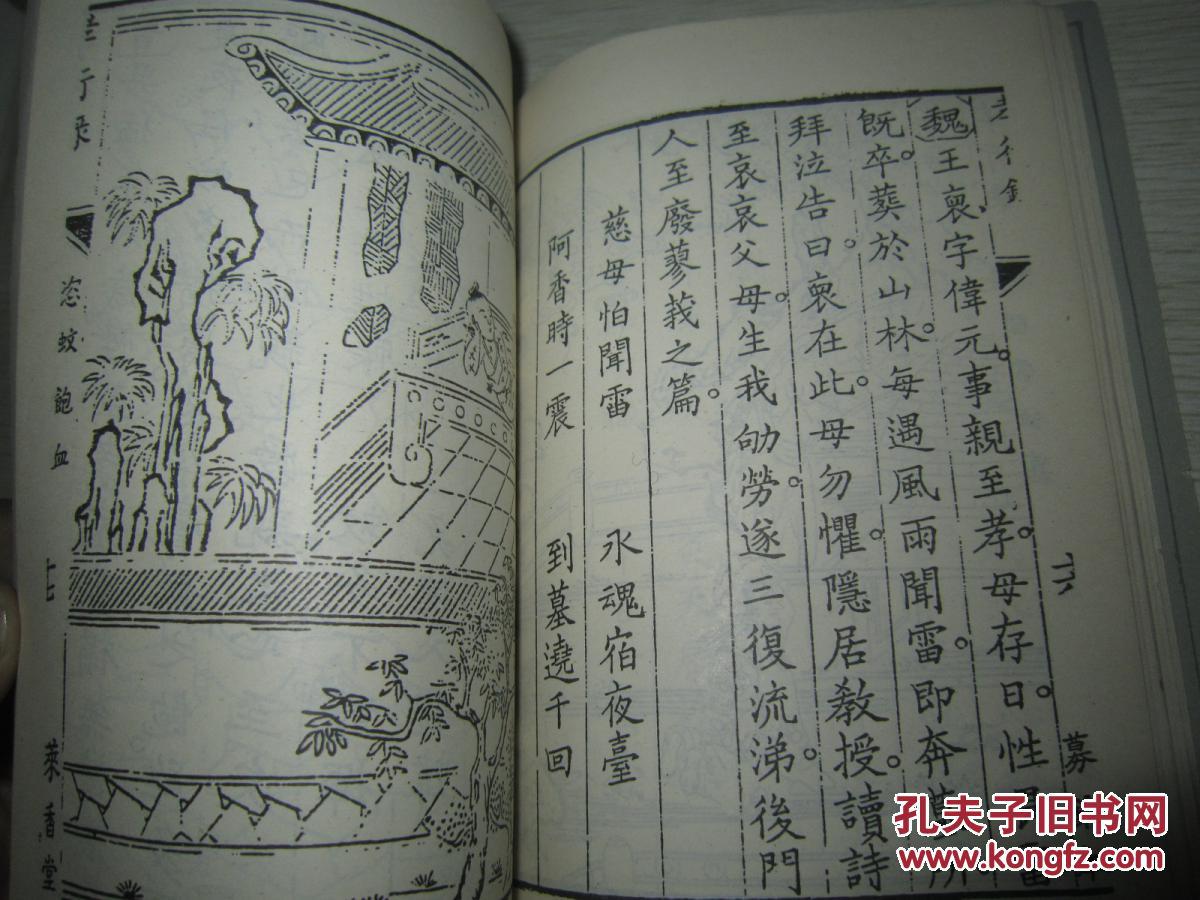 孝行錄
六
魏王裒字偉元。事親至孝。母存日。性
既卒。葬於山林。每遇風雨聞雷。即奔
拜泣告曰。裒在此。母勿懼。隱居教授。讀詩
至哀哀父母。生我劬勞。遂三復流涕。後門
人至廢蓼莪之篇。
慈母怕聞雷 氷魂宿夜臺
阿香時一震 到墓遶千回
恣蚊飽血
七
萊香堂
孔夫子旧书网
www.kongfz.com